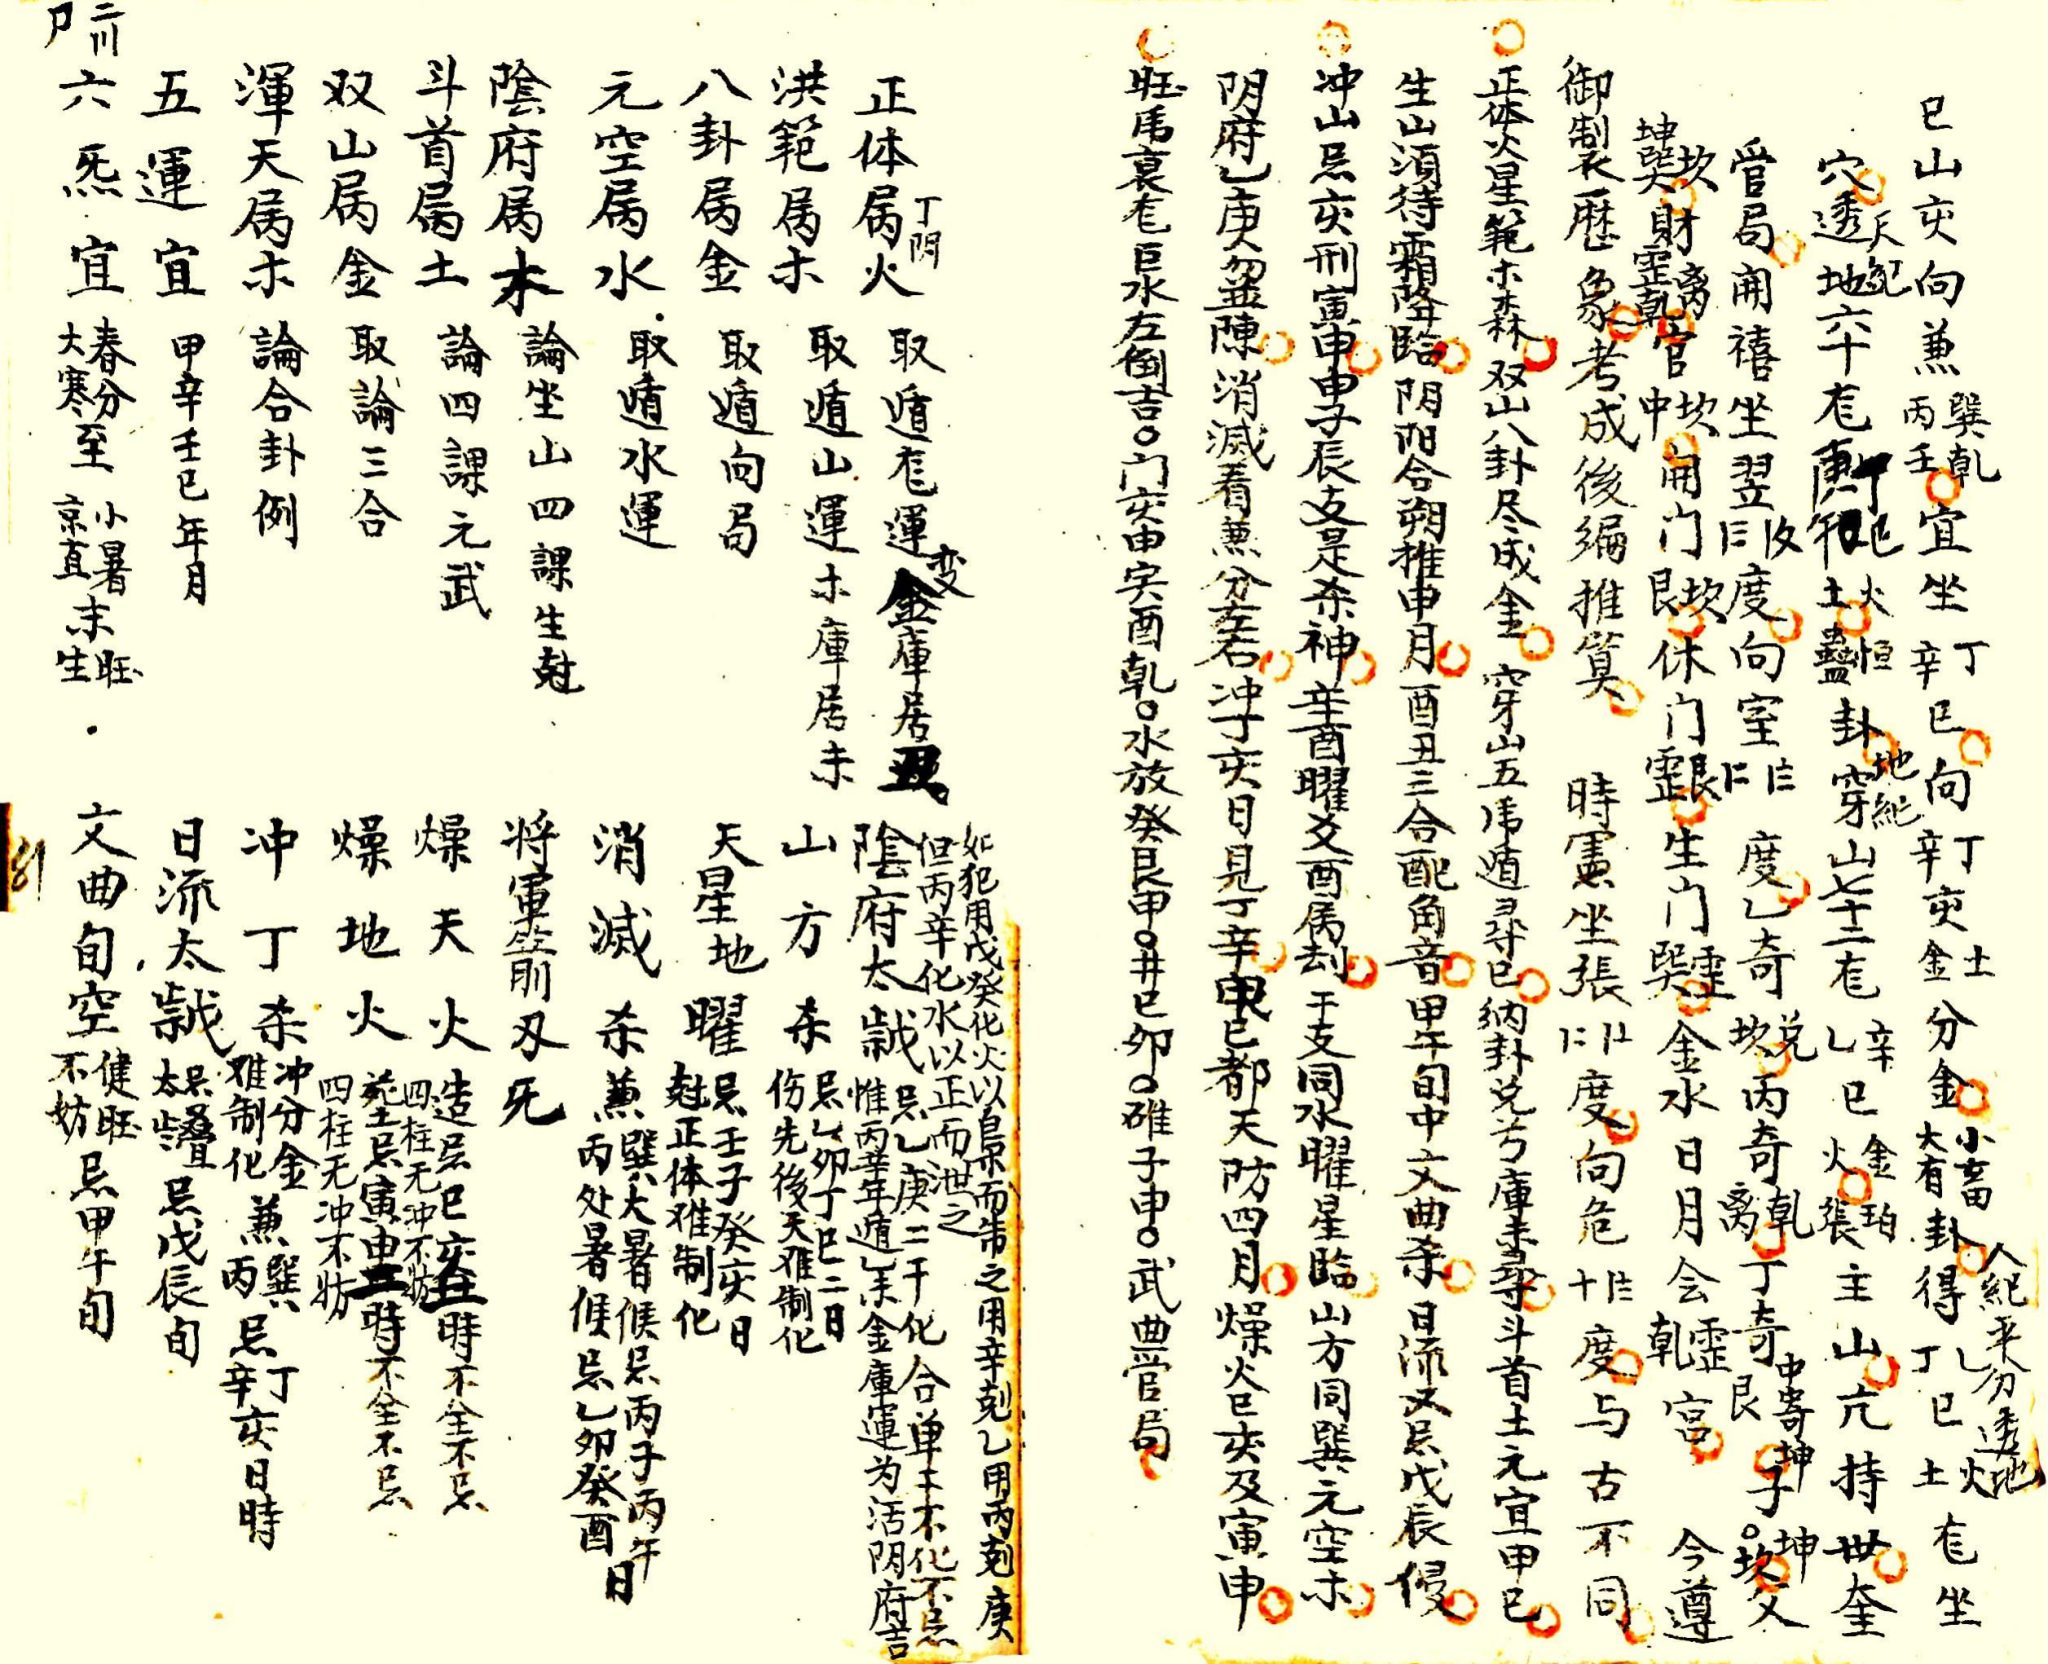 巳山亥向兼巽乾丙壬宜坐丁辛巳向丁辛亥土金分金小畜大有卦得乙丁巳火土龙坐
人紀平分透地
穴透地六十龙 火土恒蠱卦穿山七十二龙乙辛巳金火 張主山亢持世奎
天紀
地紀
管局開禧坐翌 度向室 度乙奇兑坎丙奇乾离丁奇 中寄坤艮子。坤坎父
坎坤巽財离震乾官坎中開门坎艮休门艮震生门震巽金水日月会震乾宫 今遵
御制历象考成後编推算 時憲坐張 度向危 度与古不同
正体火星範木森双山八卦尽成金穿山五虎遁尋巳纳卦兑兮庫未尋斗首土元宜甲巳
生山須待霜降臨阴阳合朔推申月酉丑三合配角音甲午旬中文曲杀日流又忌戊辰侵
冲山忌亥刑寅申申子辰支是杀神辛酉曜爻酉属刦干支同水曜星臨山方同巽元空木
阴府乙庚忽並陳消滅看兼分左右冲丁亥日見丁辛巳都天防四月燥火巳亥及寅申
旺馬衰龙巨水左倒吉。门亥申灾酉乾。水放癸艮甲。井巳卯。碓子申。武曲管局
正体属火 取遁龙運变金庫居丑。
丁阴
洪範属木 取遁山運木庫居未
八卦属金 取遁向局
元空属水 取遁水運
陰府属木 論坐山四課生尅
斗首属土 論四課元武
双山属金 取論三合
渾天属木 論合卦例
五運宜 甲辛壬巳年月
六炁宜 春分大寒至 小暑京直末旺生
如犯用戊癸化火以臬而制之用辛剋乙用丙剋庚
但丙辛化水以正而泄之
陰府太歲 忌乙庚二干化合单二不化不忌惟丙辛年遁乙未金庫運为活阴府吉
山方杀 忌乙卯丁巳二日伤先後天难制化
天星地曜 忌壬子癸亥日尅正体难制化
消滅杀 兼巽大暑候忌丙子丙午丙处暑候忌乙卯癸酉日
将軍箭刃死
燥天火 造忌巳亥時不全不忌四柱无冲不妨
燥地火 塟忌寅申時不全不忌四柱无冲不妨
冲丁杀 冲分金难制化兼巽丙忌丁辛亥日時
日流太歲 忌叠太歲忌戊辰旬
文曲旬空 健旺不妨忌甲午旬
81